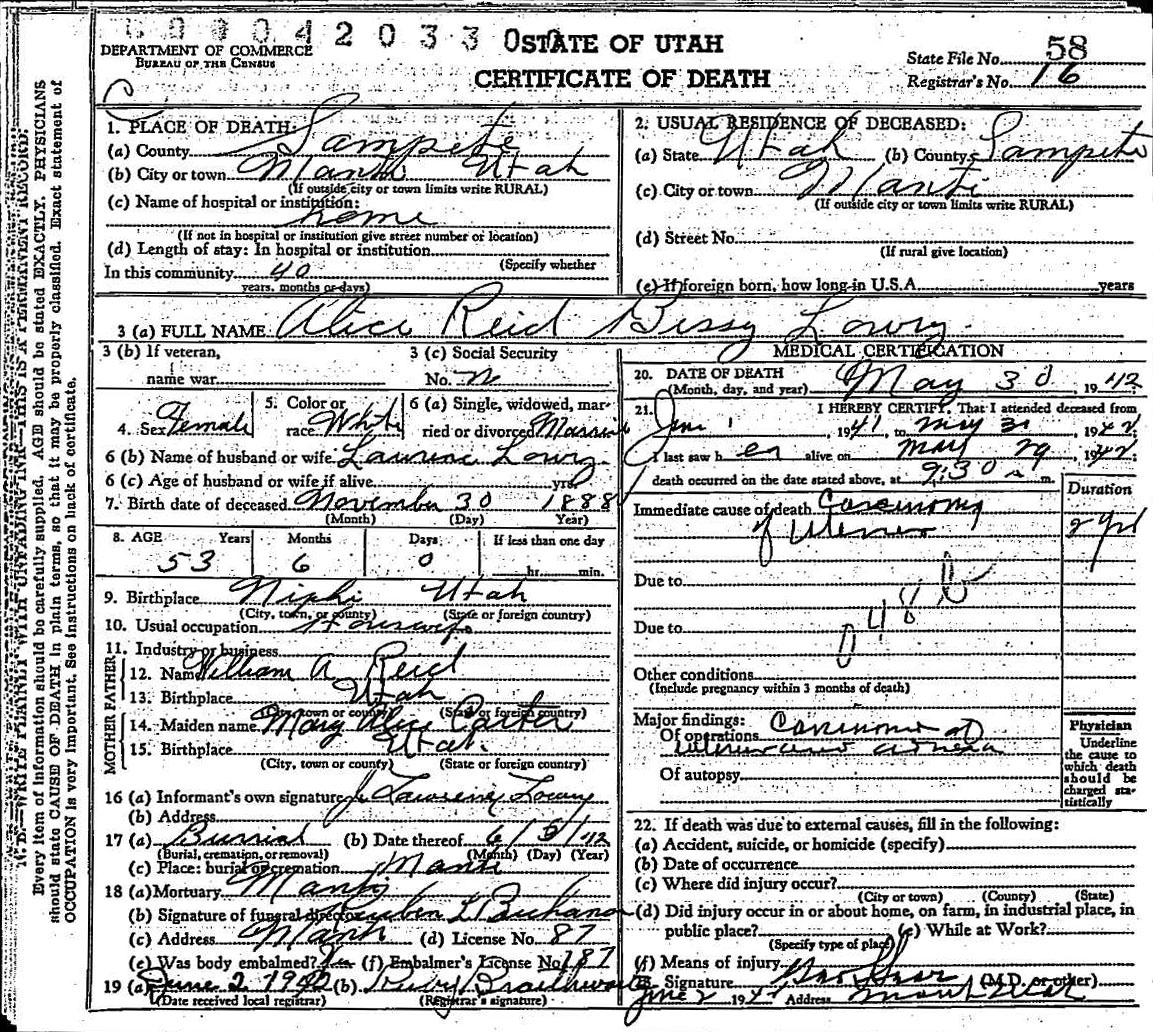 42033
DEPARTMENT OF COMMERCE
BUREAU OF THE CENSUS
STATE OF UTAH
CERTIFICATE OF DEATH
State File No. 58
Registrar's No. 16
Every item of information should be carefully supplied. AGE should be stated EXACTLY. PHYSICIANS
should state CAUSE OF DEATH in plain terms, so that it may be properly classified. Exact statement of
OCCUPATION is very important. See instructions on back of certificate.
1. PLACE OF DEATH:
(a) County Sanpete
(b) City or town Manti Utah
(If outside city or town limits write RURAL)
(c) Name of hospital or institution:
home
(If not in hospital or institution give street number or location)
(d) Length of stay: In hospital or institution
(Specify whether
In this community 40
years, months or days)
2. USUAL RESIDENCE OF DECEASED:
(a) State Utah (b) County Sanpete
(c) City or town Manti
(If outside city or town limits write RURAL)
(d) Street No.
(If rural give location)
(e) If foreign born, how long in U.S.A. years
3 (a) FULL NAME Alice Reid Lowry
3 (b) If veteran,
name war
3 (c) Social Security
No.
4. Sex Female
5. Color or
race White
6 (a) Single, widowed, mar-
ried or divorced Married
6 (b) Name of husband or wife Lowry
6 (c) Age of husband or wife if alive yrs.
7. Birth date of deceased November 30 1888
(Month) (Day) Year)
8. AGE Years Months Days If less than one day
53 6 0 hr. min.
9. Birthplace Nephi Utah
(City, town, or county) (State or foreign country)
10. Usual occupation Housewife
11. Industry or business
FATHER
12. Name William A Reid
13. Birthplace Utah
(City, town or county) (State or foreign country)
MOTHER
14. Maiden name Mary Alice
15. Birthplace Utah
(City, town or county) (State or foreign country)
16 (a) Informant's own signature Lowry
(b) Address
17 (a) Burrial (b) Date thereof 6/ /42
(Burial, cremation, or removal) (Month) (Day) (Year)
(c) Place: burial or cremation Manti
18 (a) Mortuary Manti
(b) Signature of funeral director Reuben L
(c) Address Manti (d) License No. 87
(e) Was body embalmed? Yes (f) Embalmer's License No. 187
19 (a) June 2 1942 (b) Ruby Braithwaite
(Date received local registrar) (Registrar's signature)
MEDICAL CERTIFICATION
20. DATE OF DEATH
(Month, day, and year) May 30, 1942
21. I HEREBY CERTIFY, That I attended deceased from
1941 to May 1942
I last saw her alive on May 29 1942;
death occurred on the date stated above, at 9:30 a m.
Duration
Immediate cause of death Carcinoma
of Uterus
2 yrs
Due to
Due to
048
Other conditions
(Include pregnancy within 3 months of death)
Major findings:
Of operations Carcinoma of
Of autopsy
Physician
Underline
the cause to
which death
should be
charged sta-
tistically
22. If death was due to external causes, fill in the following:
(a) Accident, suicide, or homicide (specify)
(b) Date of occurrence
(c) Where did injury occur?
(City or town) (County) (State)
(d) Did injury occur in or about home, on farm, in industrial place, in
public place? (e) While at Work?
(Specify type of place)
(f) Means of injury
Signature (M.D. or other)
June 2 194 Address Manti Utah